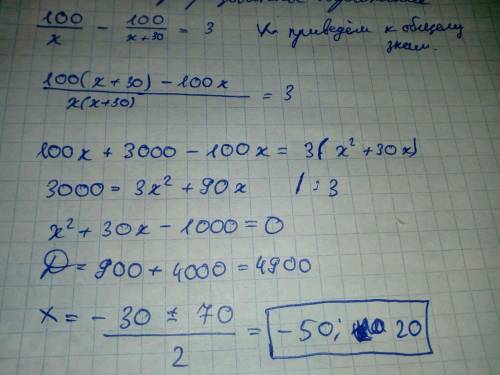 100/x - 100/(x+30) = 3 приведём к общему
знам.
(100(x+30) - 100x)/(x(x+30)) = 3
100x + 3000 - 100x = 3(x² + 30x)
3000 = 3x² + 90x /:3
x² + 30x - 1000 = 0
D = 900 + 4000 = 4900
x = (-30 ± 70)/2 = -50; 20